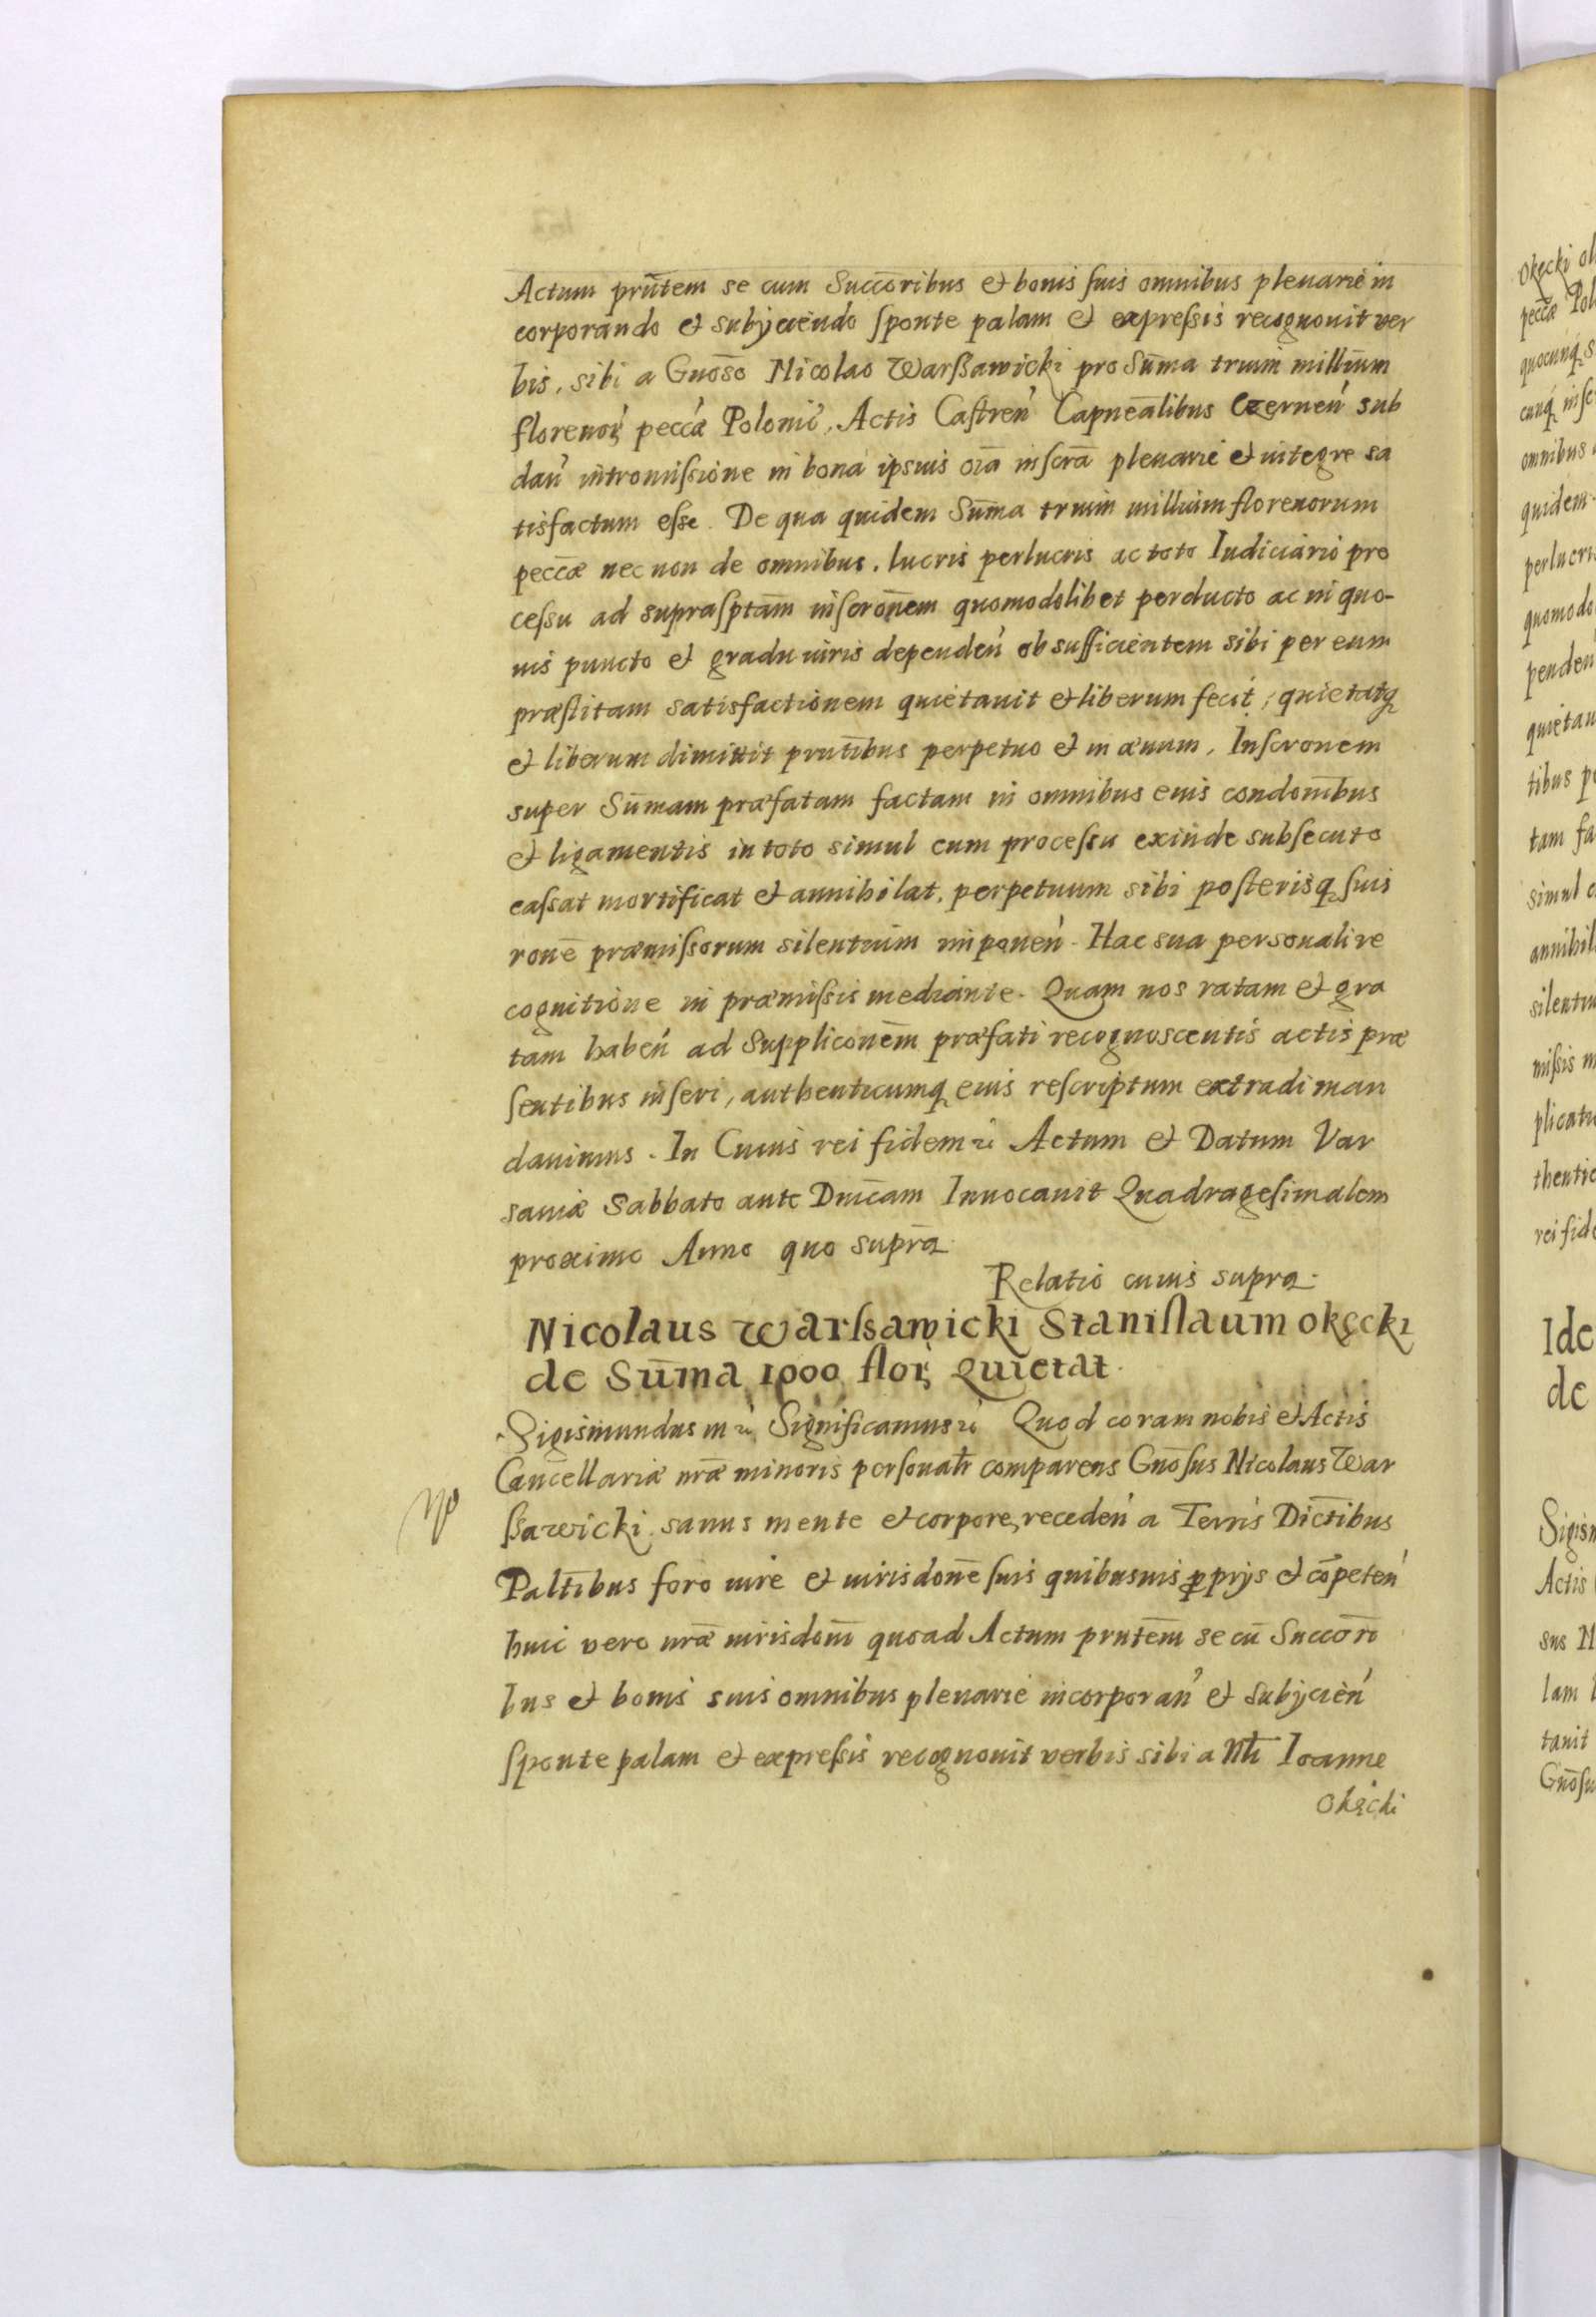 Actum prūtem se cum Succōribus et bonis suis omnibus plenarie in
corporando et subijciendo sponte palam et expressis recognouit ver
bis, sibi a Gnōso Nicolao Warssawicki pro Sūma trium millium
florenor̨ pecc̄æ Polonic̄, Actis Castren̄ Capneālibus Czernen̄ sub
dan̄ intromissione in bona ipsius oīa inscrā plenarie et integre sa
tisfactum esse. De qua quidem Sūma trium millium florenorum
pecc̄æ nec non de omnibus, lucris perlucris ac toto Iudiciario pro
cessu ad suprasptām inscrōnem quomodolibet perducto ac in quo-
uis puncto et gradu iuris dependen̄ ob sufficientem sibi per eum
præstitam satisfactionem quietauit et liberum fecit, quietatq̨
et liberum dimittit prntībus perpetuo et in æuum, Inscronem
super Sūmam præfatam factam in omnibus eius condonībus
et ligamentis in toto simul cum processu exinde subsecuto
cassat mortificat et annihilat, perpetuum sibi posterisq̨ suis
ronē præmissorum silentium imponen̄. Hac sua personali re
cognitione in præmissis mediante. Quam nos ratam et gra
tam haben̄ ad Supplicōnēm præfati recognoscentis actis præ
sentibus inseri, authenticumq̨ eius rescriptum extradi man
dauimus. In Cuius rei fidem ꝛc̄ Actum et Datum Var
sauiæ Sabbato ante Dnīcam Inuocauit Quadragesimalem
proximo Anno quo supra.
Relatio cuius supra.
Nicolaus Warssawicki Stanislaum okęcki
de Sūma 1000 flor̨ Quietat.
Sigismundus in ꝛc̄ Significamus ꝛc̄ Quod coram nobis et Actis
Cancellariæ nrǣ minoris personalr̄ comparens Gnōsus Nicolaus War
ssawicki sanus mente et corpore, receden̄ a Terris Dictībus
Paltībus foro iure et iurisdonē suis quibusuis ꝓprijs et cōpeten̄
huic vero nrǣ iurisdonī quoad Actum prntēm se cū Succōri
bus et bonis suis omnibus plenarie incorporan̄ et subijcien̄
sponte palam et expressis recognouit verbis sibi a Nb̄li Ioanne
Okęcki